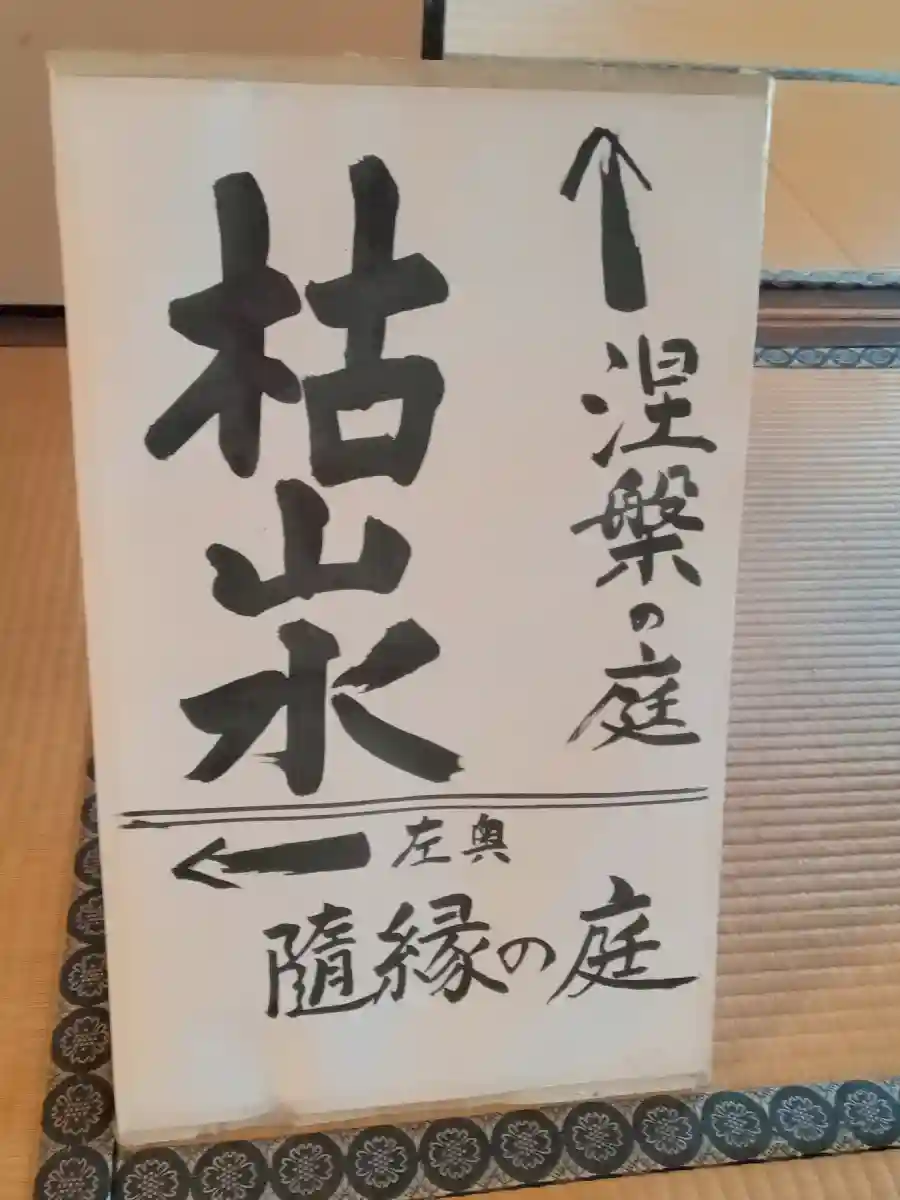 ↑涅槃の庭
枯山水
←左奥
随縁の庭